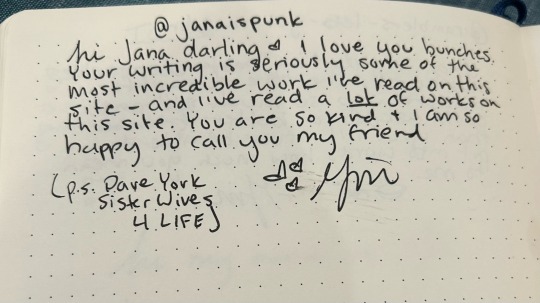 @janaispunk
hi Jana darling ♡ I love you bunches.
Your writing is seriously some of the
most incredible work I've read on this
site - and I've read a lot of works on
this site. You are so kind + I am so
happy to call you my friend
(p.s. Dave York
Sister Wives
4 LIFE)